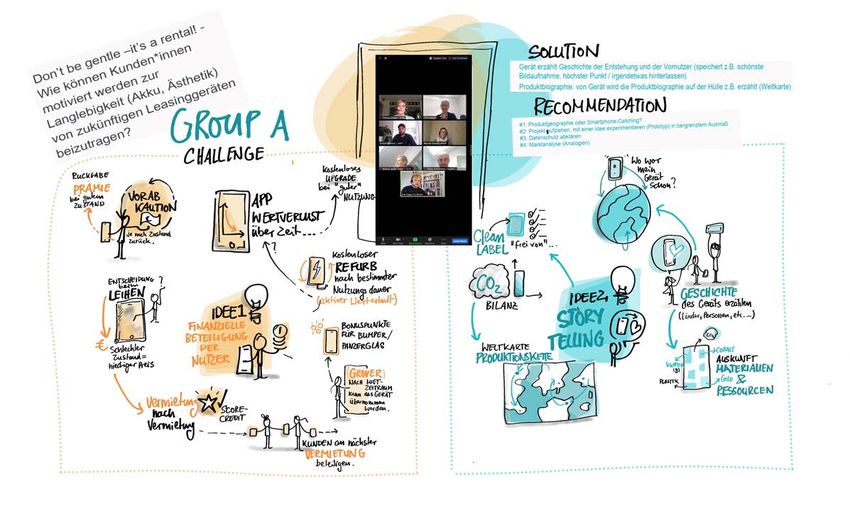 Don't be gentle –it's a rental! -
Wie können Kunden*innen
motiviert werden zur
Langlebigkeit (Akku, Ästhetik)
von zukünftigen Leasinggeräten
beizutragen?
GROUP A
CHALLENGE
SOLUTION
Gerät erzählt Geschichte der Entstehung und der Vornutzer (speichert z.B. schönste
Bildaufnahme, höchster Punkt / irgendetwas hinterlassen)
Produktbiographie: von Gerät wird die Produktbiographie auf der Hülle z.B. erzählt (Weltkarte)
RECOMMENDATION
#1: Produktgeographie oder Smartphone-Catching?
#2: Projekt aufziehen, mit einer Idee experimentieren (Prototyp) in begrenztem Ausmaß
#3: Datenschutz abklären
#4: Marktanalyse (Analogien)
RÜCKGABE
PRÄMIE
bei gutem
ZUSTAND
VORAB
KAUTION
Je nach Zustand
zurück.
APP
WERTVERLUST
über Zeit...
kostenloses
UPGRADE
bei "guter"
NUTZUNG
?
kostenloser
REFURB
nach bestimmter
Nutzungsdauer
(aktiver Werterhalt)
ENTSCHEIDUNG
beim
LEIHEN
€
Schlechter
Zustand=
niedriger Preis
IDEE1
FINANZIELLE
BETEILIGUNG
DER
NUTZER
BONUSPUNKTE
FÜR BUMPER/
PANZERGLAS
GROVER
NACH MIET-
ZEITRAUM
kann das GERÄT
übernommen
werden.
Vermietung
nach
Vermietung
SCORE-
CREDIT
KUNDEN an nächster
VERMIETUNG
beteiligen.
Clean
LABEL
"Frei von"...
CO2
BILANZ
IDEE2
STORY
TELLING
WELTKARTE
PRODUKTIONSKETTE
Wo war
mein
Gerät
schon?
GESCHICHTE
des Geräts erzählen
(Länder, Personen, etc...)
COBALT
KUPFER
GOLD
PLASTIK
AUSKUNFT
MATERIALIEN
&
RESSOURCEN